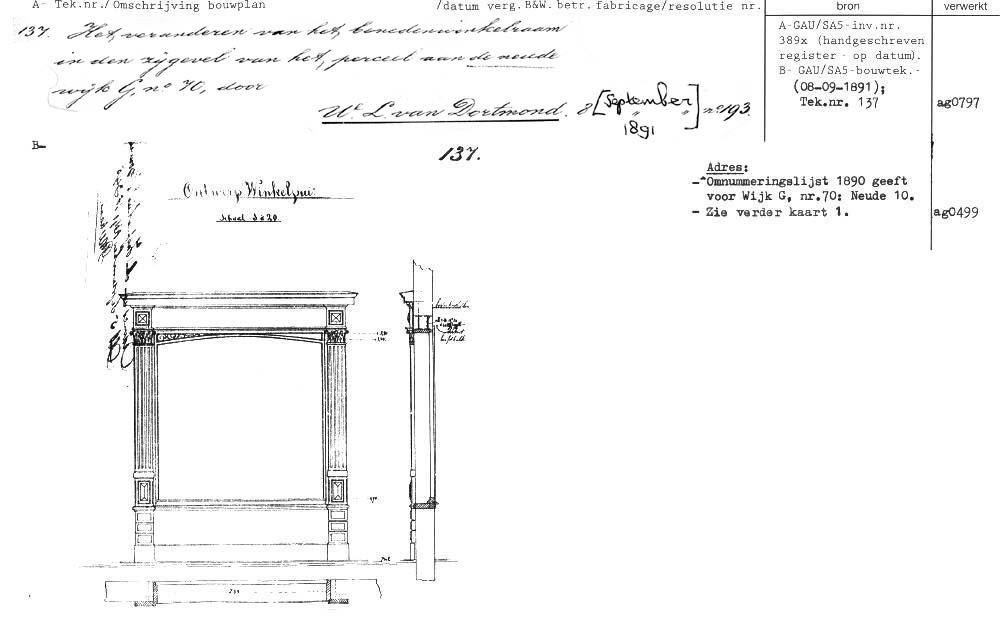 A- Tek.nr./Omschrijving bouwplan /datum verg.B&W. betr. fabricage/resolutie nr. bron verwerkt
137. Het veranderen van het benedenwinkelraam
in den zijgevel van het perceel aan de neude
wijk G, no 70, door
W. L. van Dortmond. 8 [September 1891] no 193.
A-GAU/SA5-inv.nr.
389x (handgeschreven
register - op datum).
B- GAU/SA5-bouwtek.-
(08-09-1891);
Tek.nr. 137
ag0797
B-
137.
Ontwerp Winkelpui:
Schaal 1 à 20
Adres:
-Omnummeringslijst 1890 geeft
voor Wijk G, nr.70: Neude 10.
- Zie verder kaart 1.
ag0499